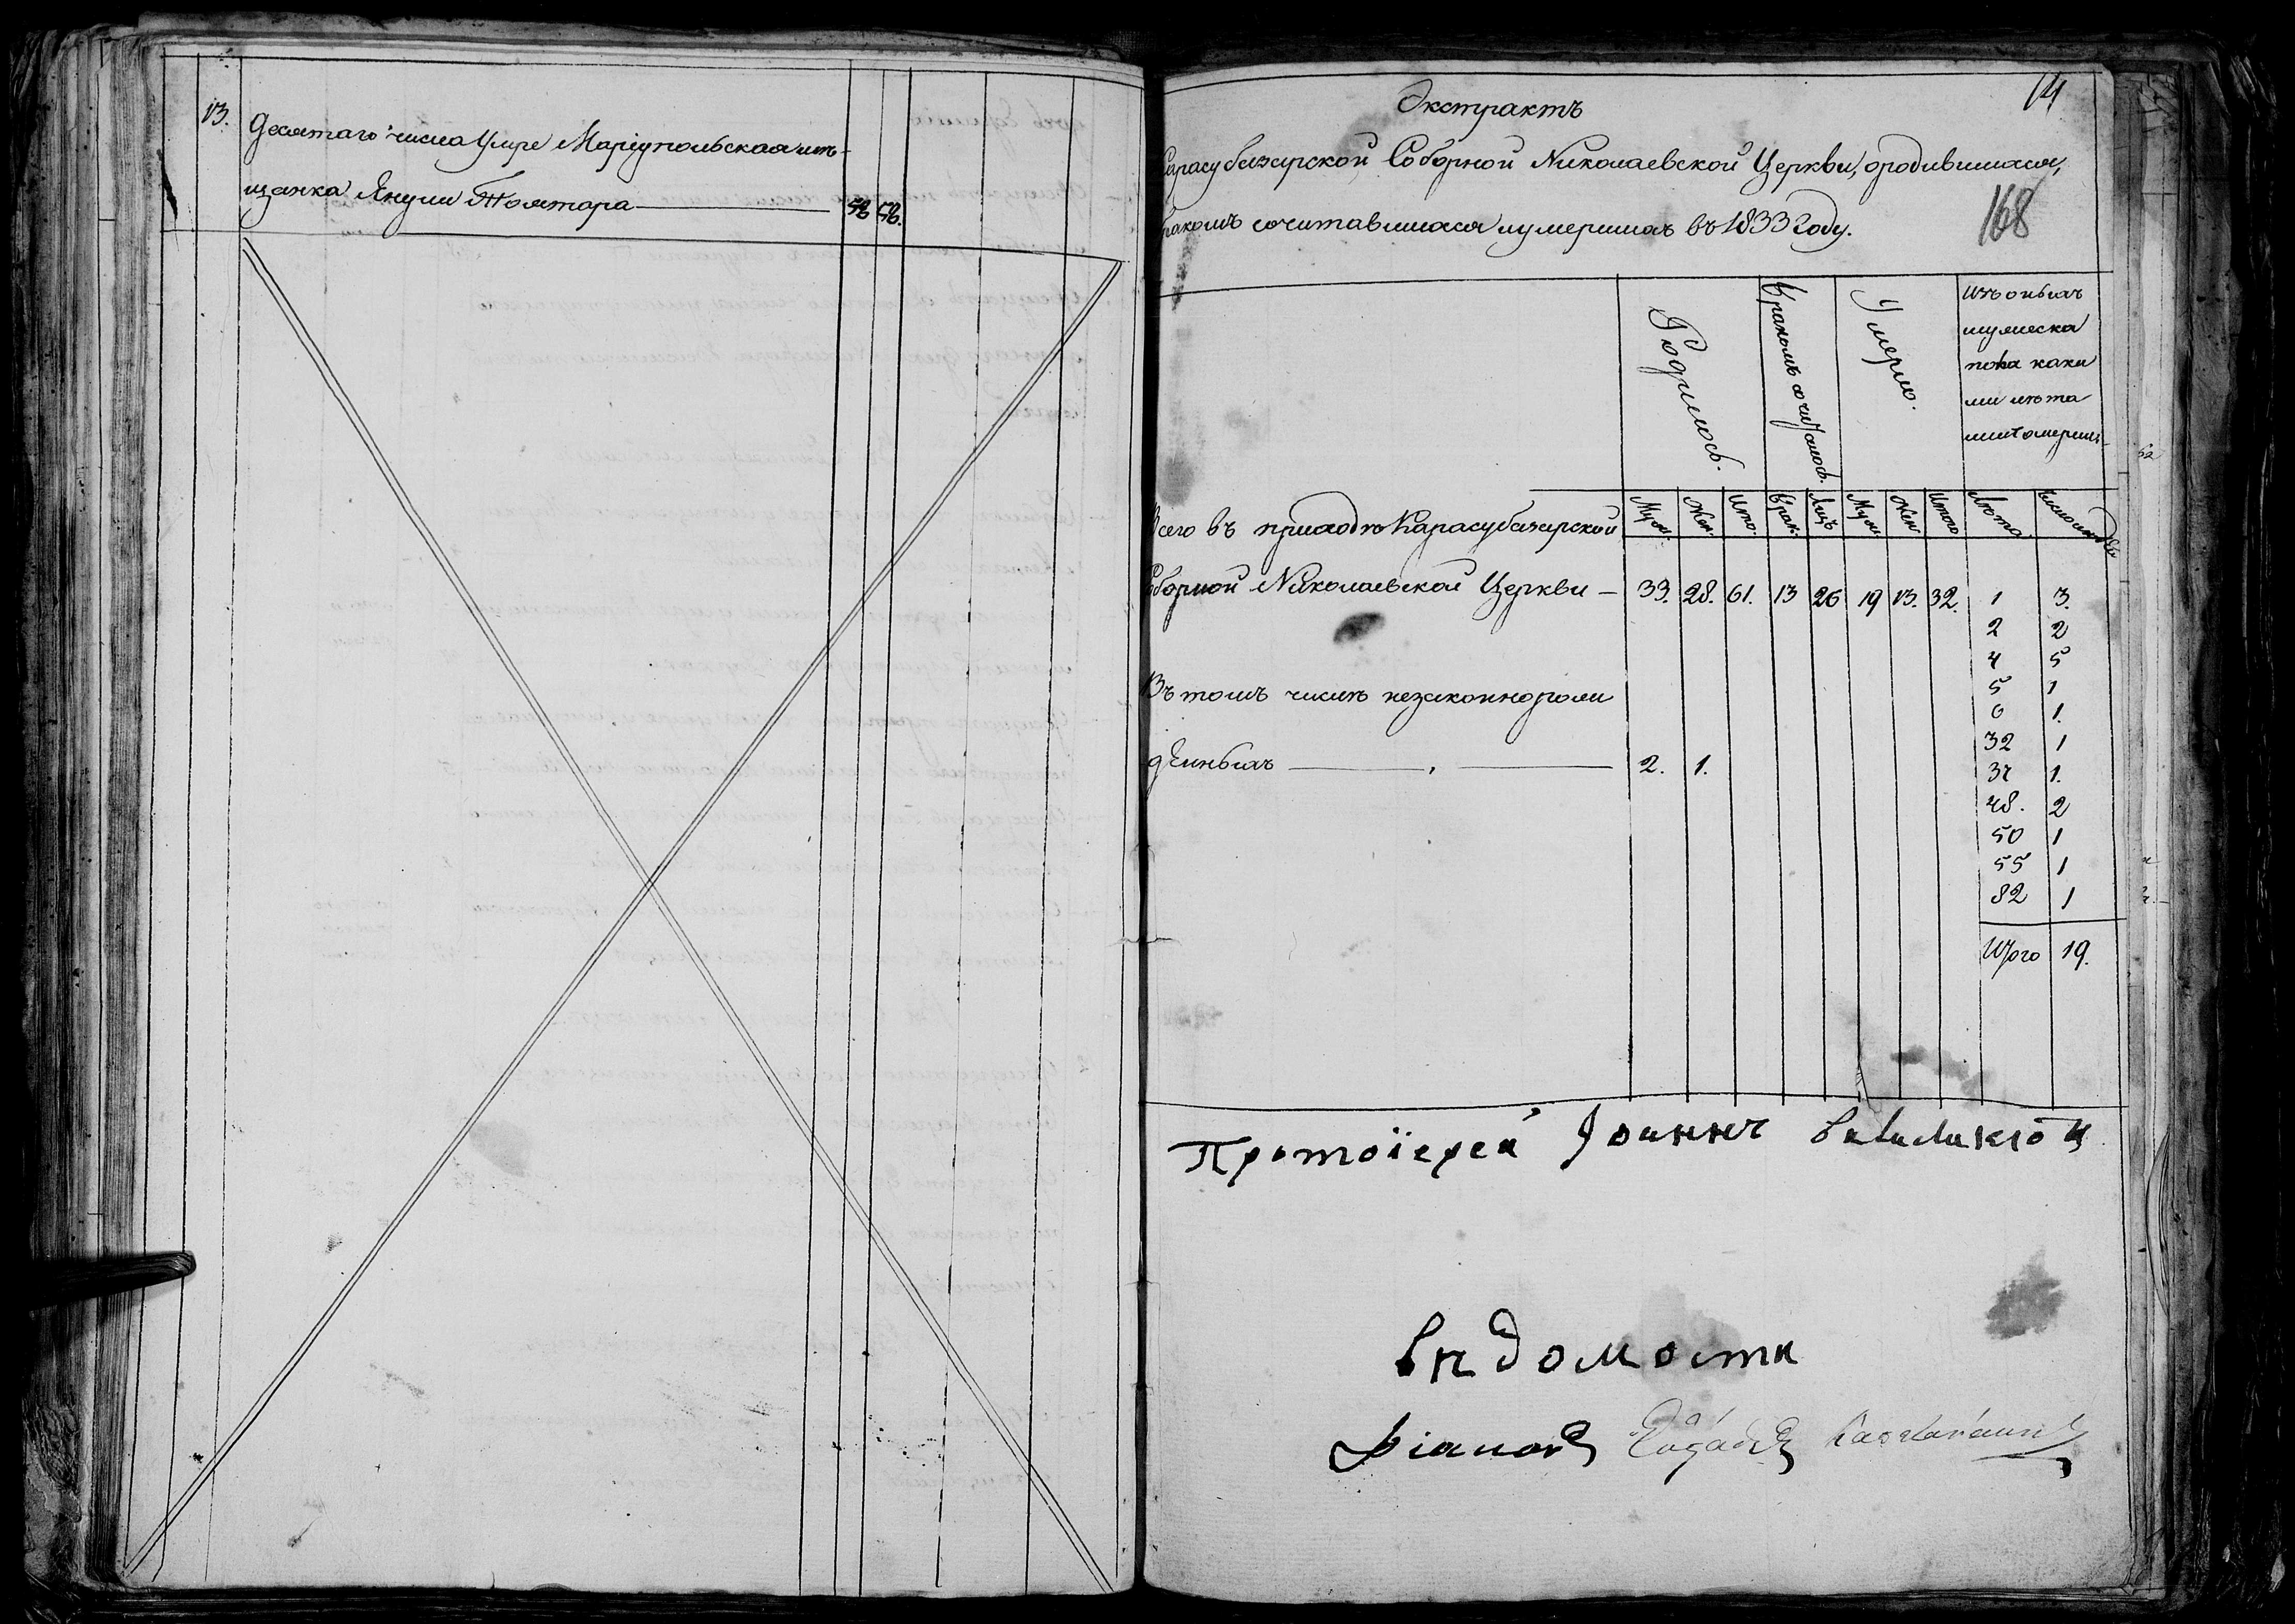 13.
Десятаго числа Умре Маріупольская мѣ-
щанка Янули Толмтара 56 56.
14
Экстрактъ
Карасубазарской Соборной Николаевской Церкви, ородившихся,
168
бракомъ сочитавшихся иумершихъ въ 1833 Году.
Родилось.
Бракомъ сочиталось.
Умерло.
Изъ оныхъ
мужеска
пола каки
ми лѣта
ми померли
Муж. Жен. Ито. Брак. Лицъ Муж. Жен. Итого Лѣта. число
Всего въ приходѣ Карасубазарской
Соборной Николаевской Церкви — 33. 28. 61. 13 26 19 13. 32. 1 3.
2 2
4 5
5 1
Въ томъ числѣ незаконнорож
6 1.
32 1
дЕнныхъ 2. 1.
37 1.
48. 2
50 1
55 1
82 1
Итого 19.
Протоіерей Іоаннъ
Вѣдомости
Діаконъ